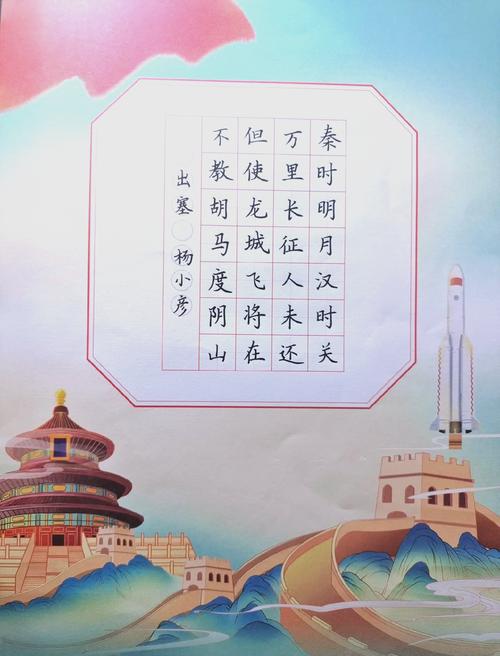 秦时明月汉时关
万里长征人未还
但使龙城飞将在
不教胡马度阴山
出塞 杨小彦